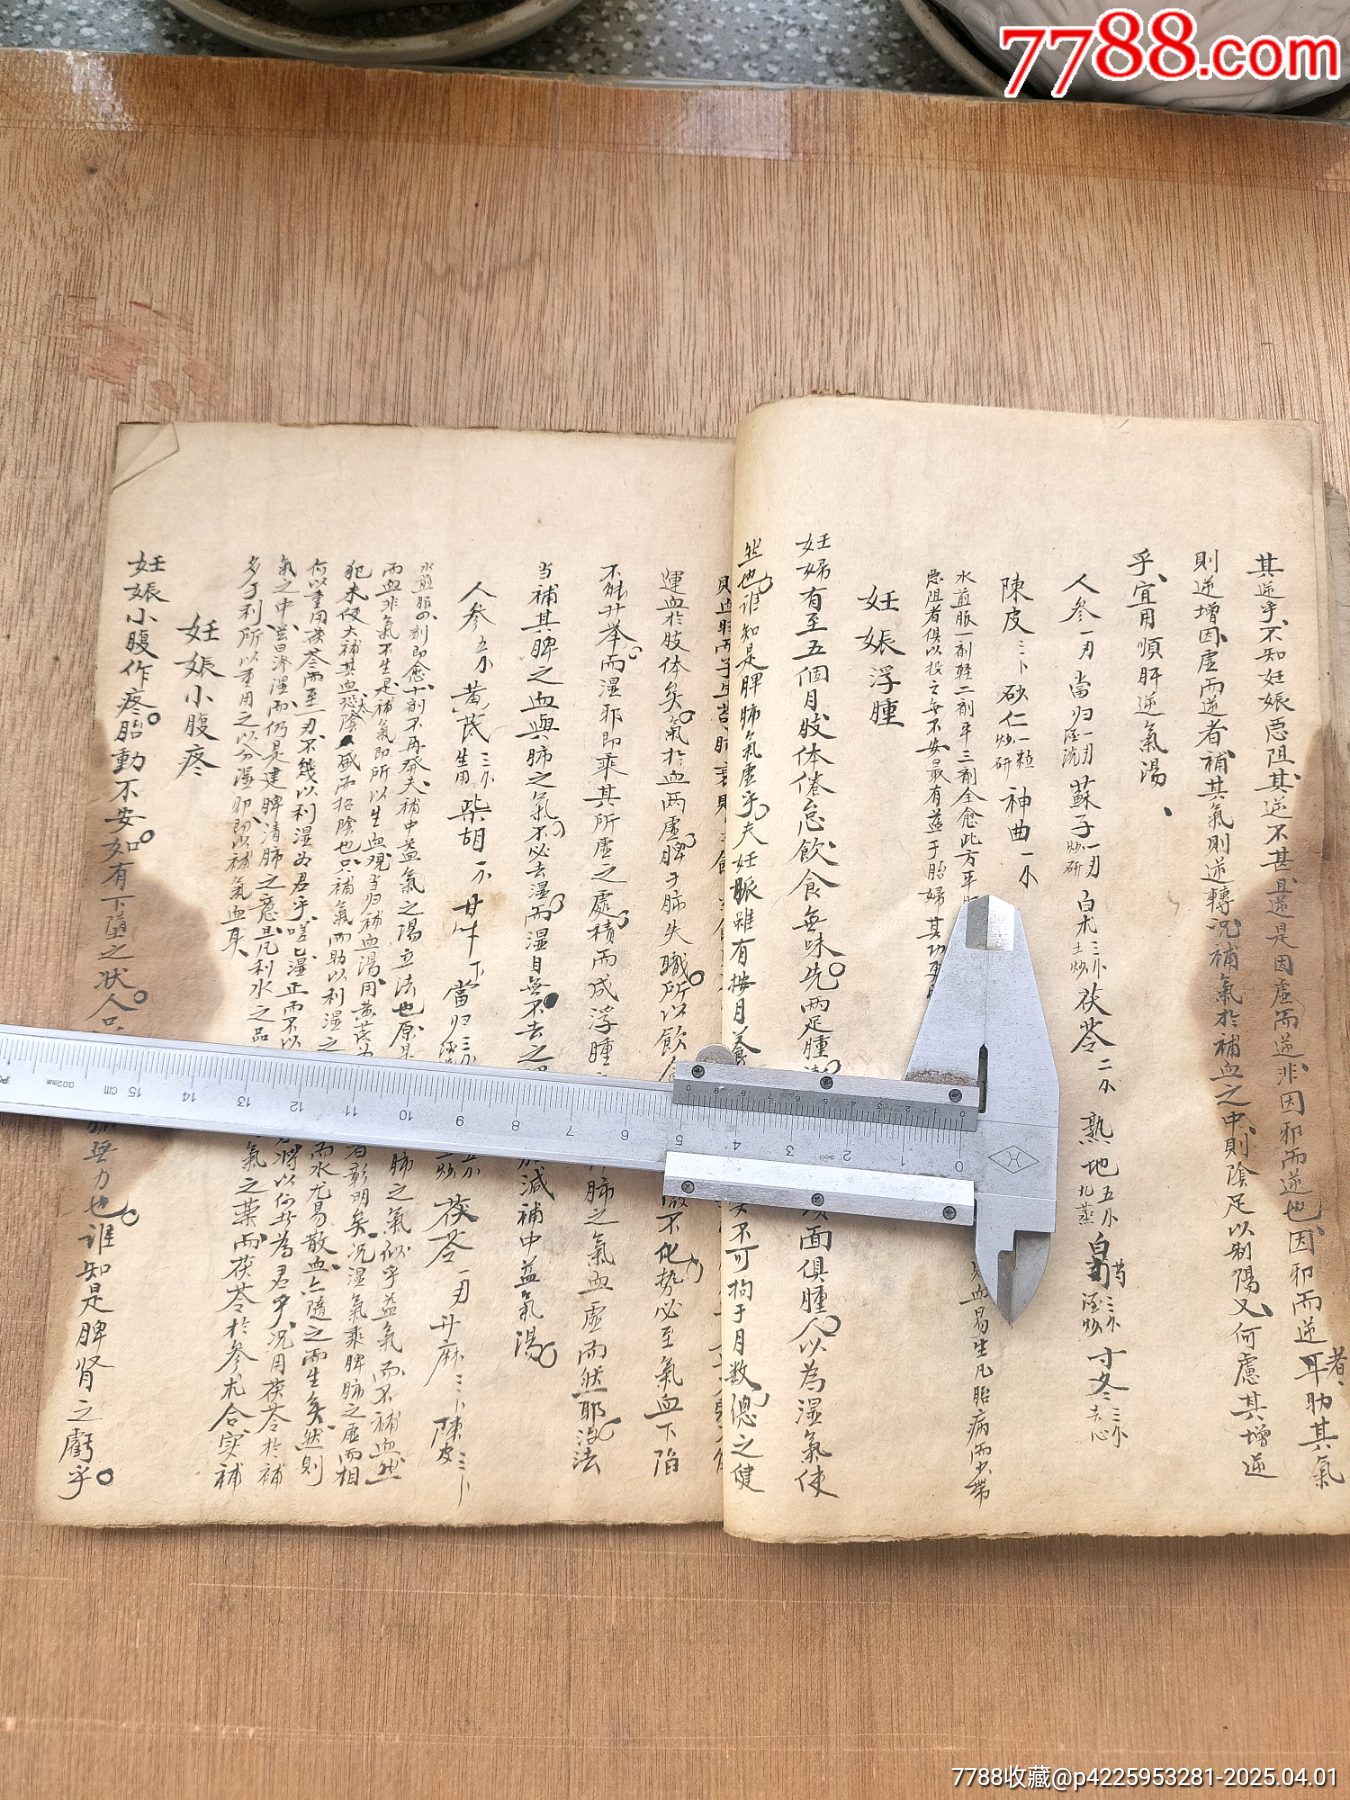 7788.com
其逆乎不知妊娠惡阻其逆不甚且逆是因虛而逆非因邪而逆也因邪而逆者耳助其氣
則逆增因虛而逆者補其氣則逆轉況補氣於補血之中則陰足以制陽又何慮其增逆
乎宜用順肝逆氣湯
人參一刃當归一刃酒洗蘇子一刃炒研白朮三小土炒茯苓二小熟地五小九蒸白芍三小酒炒寸冬三小去心
陳皮三卜砂仁一粒炒研神曲一小
水煎服一剤輕二剤平三剤全愈此方平
惡阻者俱以投之無不安最有益于胎婦其功
血易生凡胎病而少帶
妊娠浮腫
妊婦有至五個月肢体倦怠飲食無味先兩足腫
面俱腫人以為湿氣使
然也誰知是脾肺氣虛乎夫妊脈雖有按月養
不可拘于月数總之健
運血於肢体矣氣於血两虛脾于肺失職所以飲食
不化势必至氣血下陷
不能升举而湿邪即乘其所虛之處積而成浮腫
肺之氣血虛而然耶治法
当補其脾之血與肺之氣不必去湿而湿自無不去之
加減補中益氣湯
人參五小黃芪三小生用柴胡一小甘草丁當归三小
茯苓一刃升麻三卜陳皮三卜
水煎服四剤即愈十剤不再發夫補中益氣之陽立法也原是
肺之氣似乎益氣而不補血然
而血非氣不生是補氣即所以生血观当归補血湯用黃芪為
者彰明矣况湿氣乘脾肺之虛而相
犯未便大補其血恐陰太盛而招陰也只補氣而助以利湿之
而水尤易散血亦隨之而生矣然則
何以重用茯苓而至一刃不幾以利湿为君乎嗟乎湿正而不以
將以何者為君乎况用茯苓於補
氣之中雖曰滲湿而仍是建脾清肺之意且凡利水之品
氣之藥而茯苓於參朮合实補
多于利所以重用之以分湿邪即以補氣血耳
妊娠小腹疼
妊娠小腹作疼胎動不安如有下墮之状人只
無力也谁知是脾肾之虧乎
7788收藏@p4225953281-2025.04.01